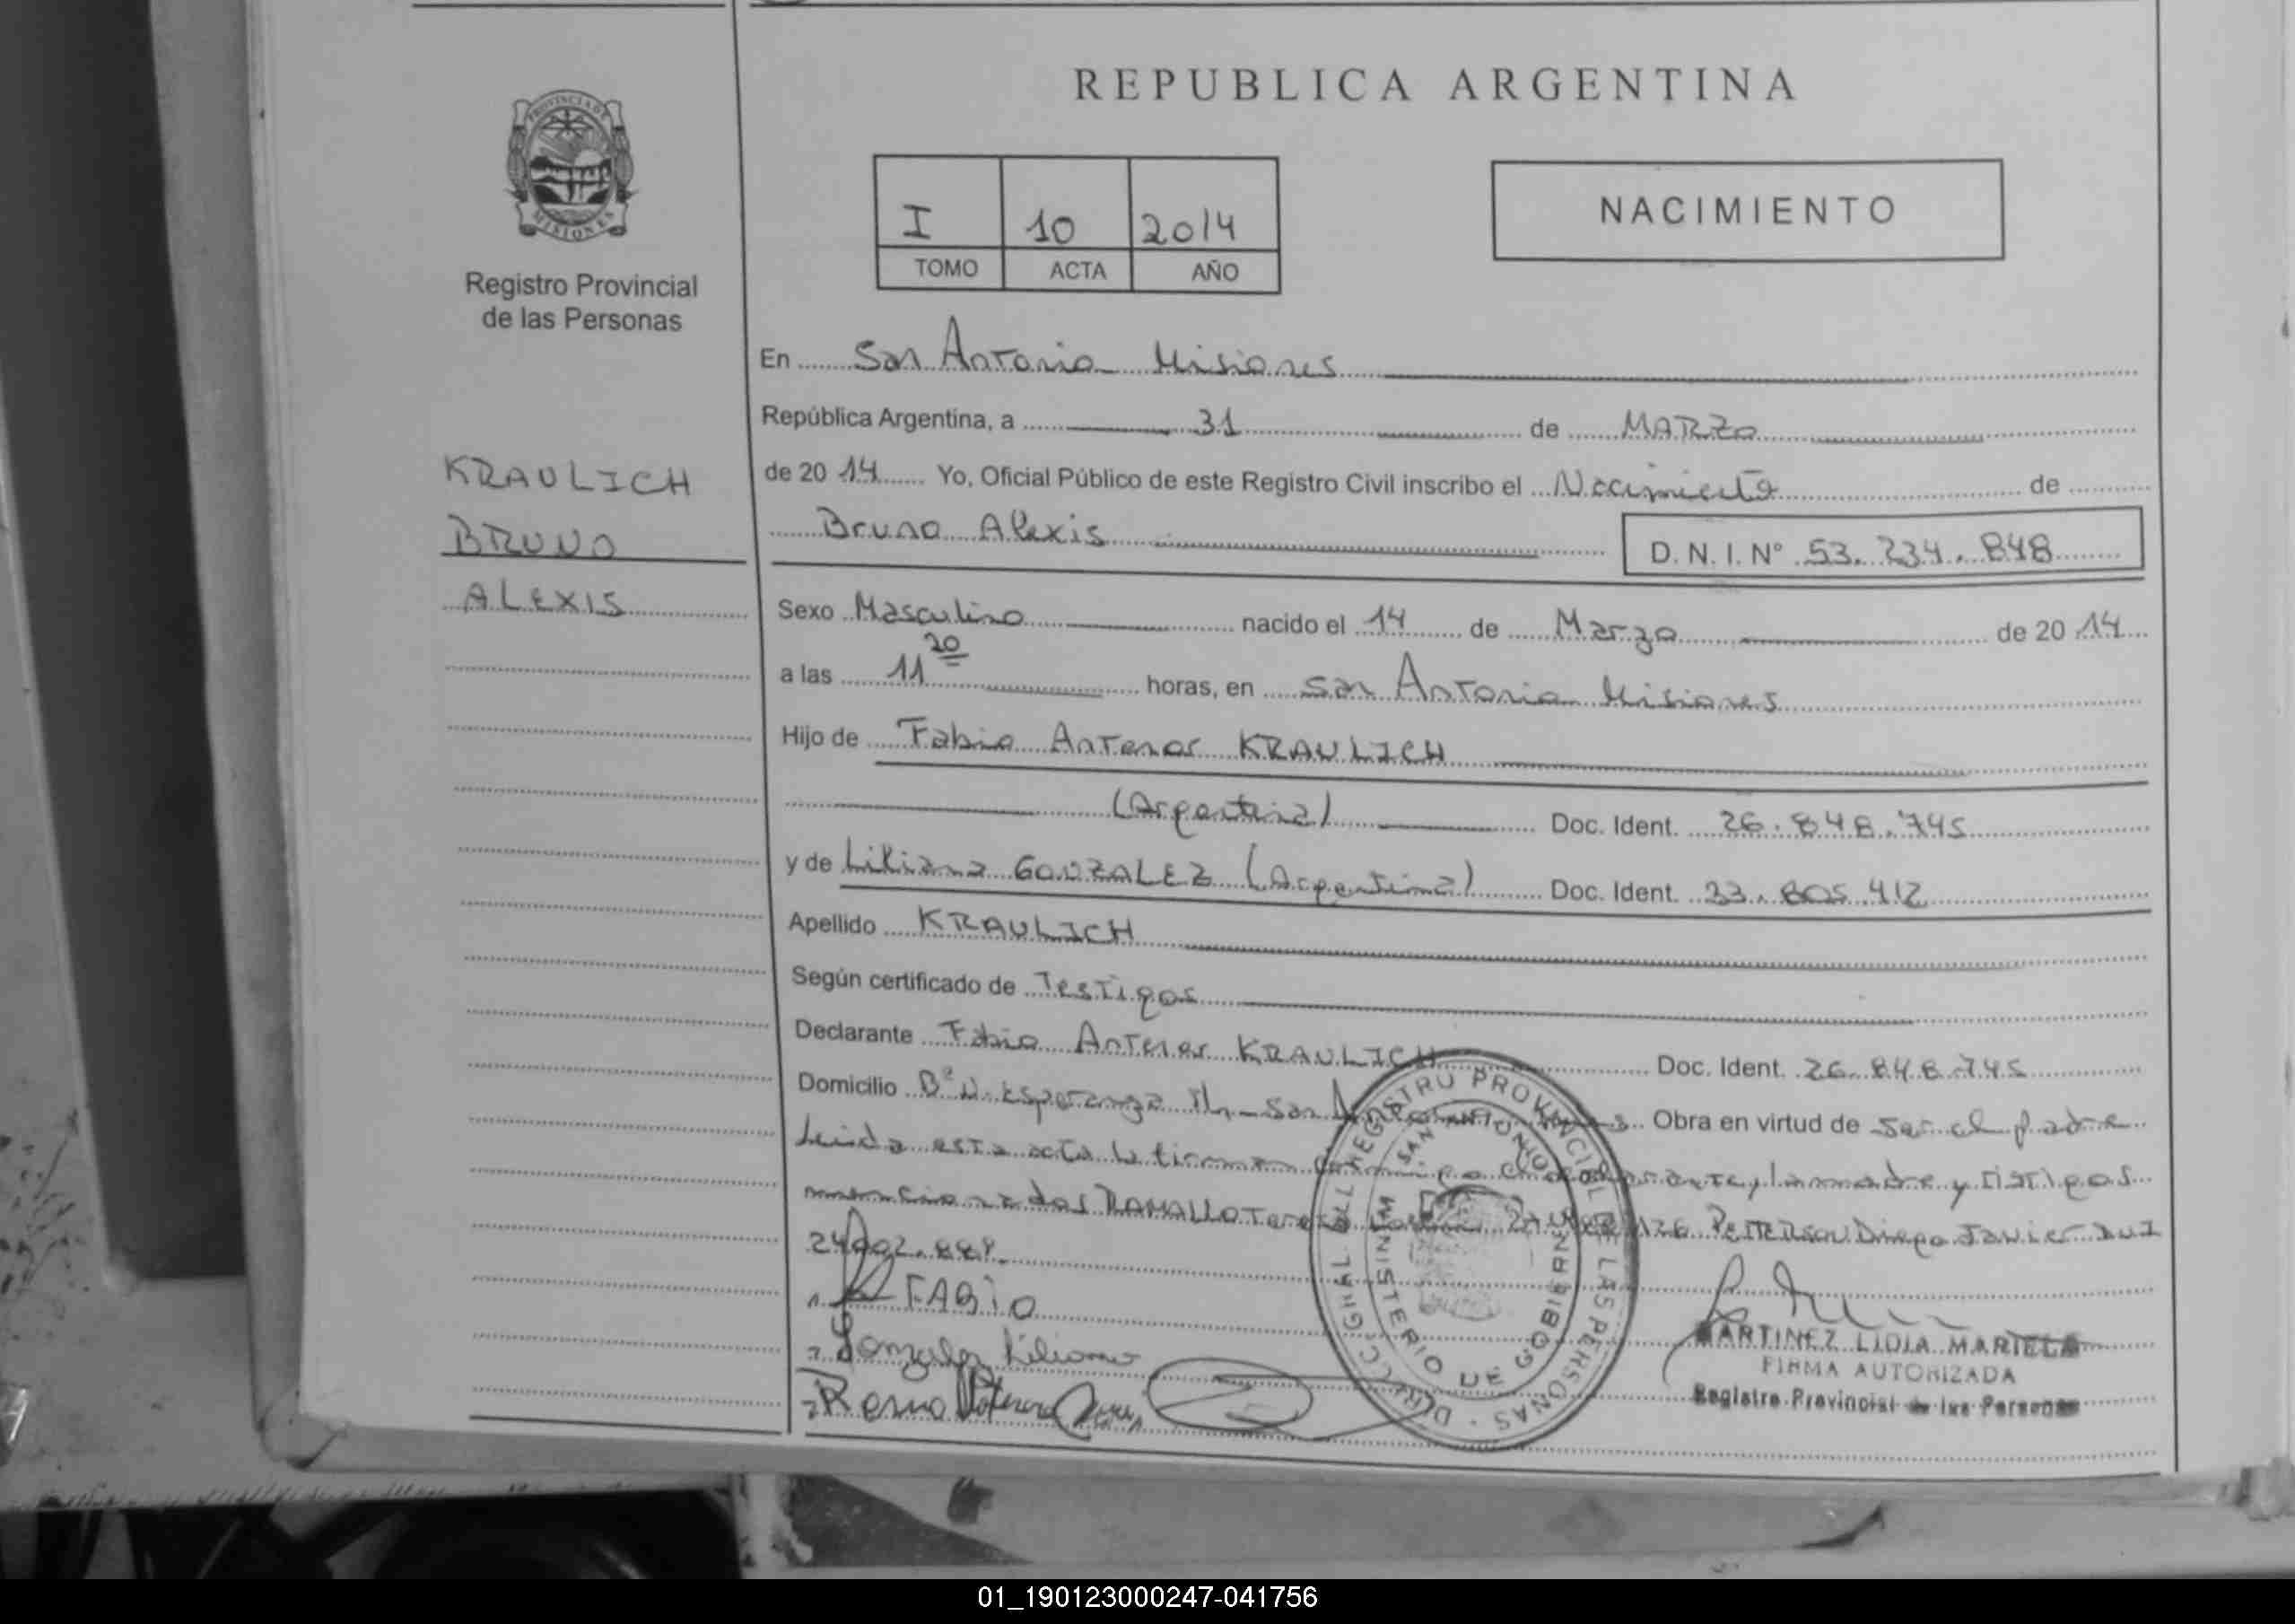 REPUBLICA ARGENTINA
PROVINCIA DE
MISIONES
Registro Provincial
de las Personas
I 10 2014
TOMO ACTA AÑO
NACIMIENTO
KRAULICH
BRUNO
ALEXIS
En San Antonio Misiones
República Argentina, a 31 de MARZO
de 20 14 Yo, Oficial Público de este Registro Civil inscribo el Nacimiento de
Bruno Alexis D. N. I. N° 53.234.848
Sexo Masculino nacido el 14 de Marzo de 20 14
a las 11 20 horas, en San Antonio Misiones
Hijo de Fabio Antenor KRAULICH
(Argentina) Doc. Ident. 26.848.745
y de Liliana GONZALEZ (Argentina) Doc. Ident. 33.805.412
Apellido KRAULICH
Según certificado de Testigos
Declarante Fabio Antenor KRAULICH Doc. Ident. 26.848.745
Domicilio B° N. Esperanza San Obra en virtud de ser el padre
Leida esta acta la firman conmigo el declarante, la madre y testigos
mencionados RAMALLO Teresa 126 PETTERSON Diego Javier DNI
24.002.889.
FABIO
Gonzalez Liliana
MARTINEZ LIDIA MARIELA
FIRMA AUTORIZADA
Registro Provincial de las Personas
REGISTRO PROVINCIAL DE LAS PERSONAS
SAN ANTONIO
MINISTERIO DE GOBIERNO
01_190123000247-041756